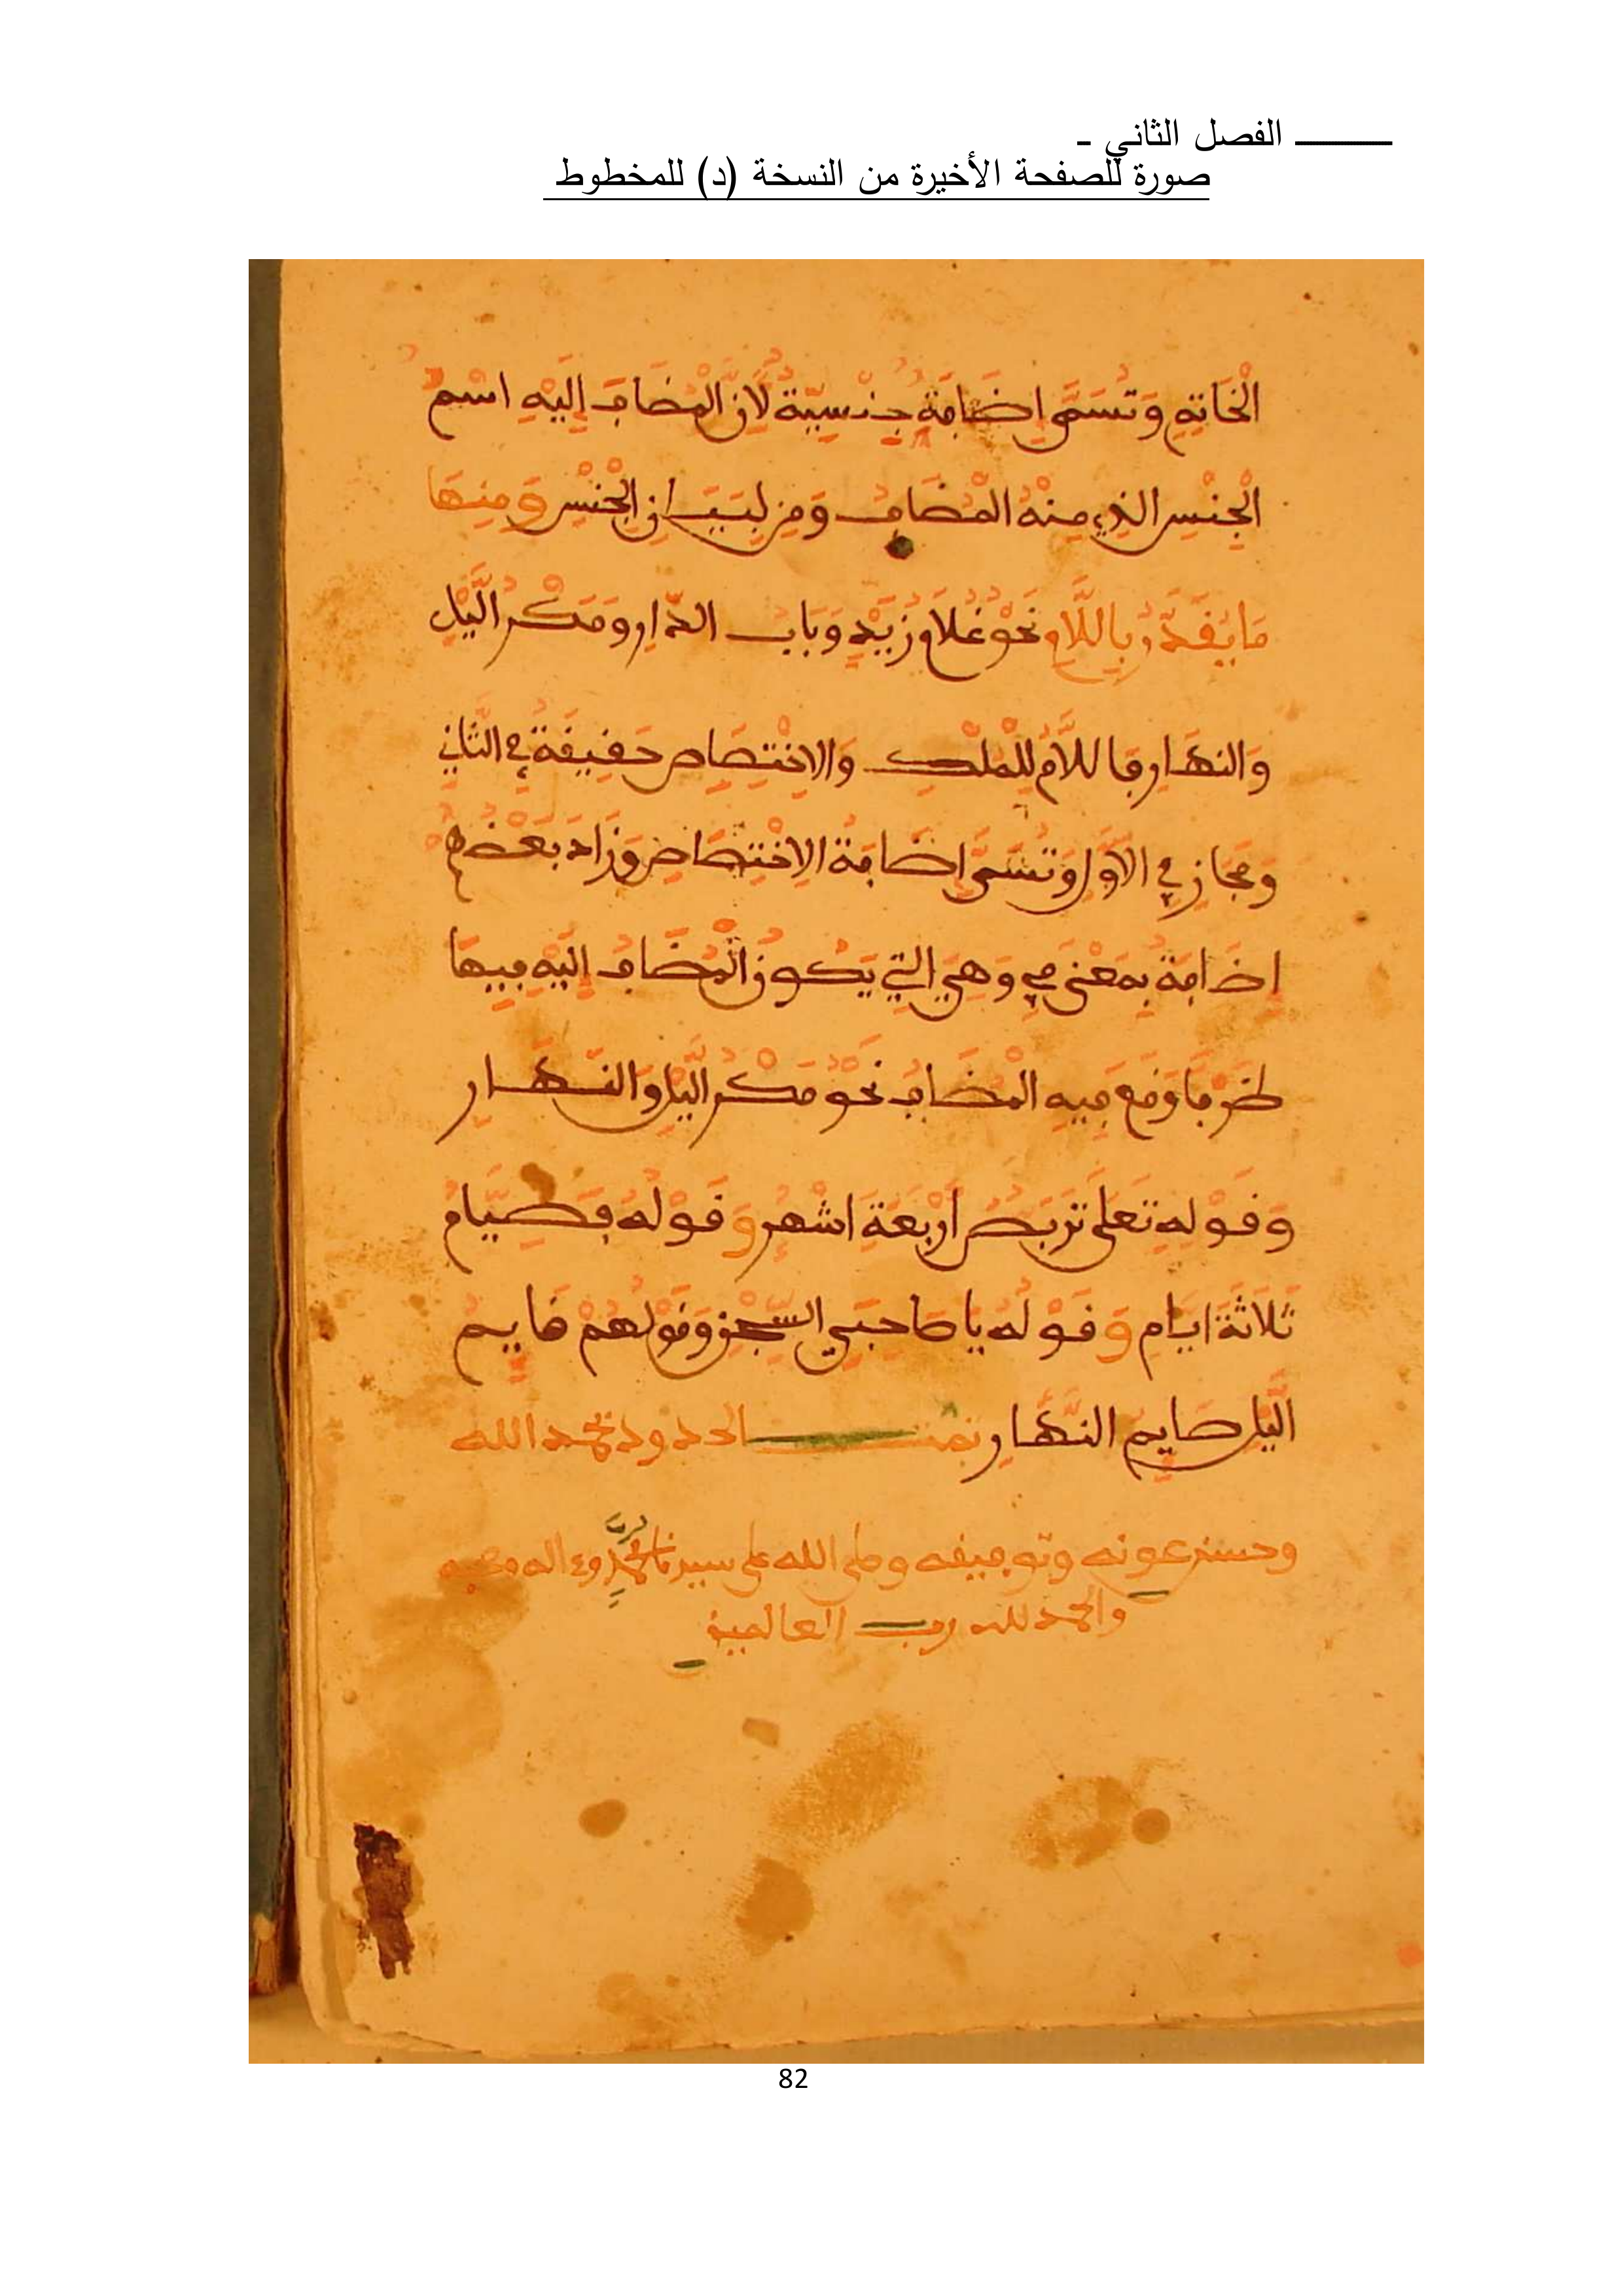 الفصل الثاني -
صورة للصفحة الأخيرة من النسخة (د) للمخطوط
الْخَاتِمِ وَتُسَمَّى إِضَافَةً جِنْسِيَّةً لَأَنَّ الْمُضَافَ إِلَيْهِ اسْمُ
الْجِنْسِ الذِي مِنْهُ الْمُضَافُ وَمِن لِبَيَانِ الْجِنْسِ وَمِنهَا
مَا يُقَدَّرُ بِاللَّامِ نَحْوُ غُلَامُ زَيْدٍ وَبَابُ الدَّارِ وَمَكْرُ الَّيْلِ
وَالنهَارِ فَاللَّامُ لِلْمِلْكِ وَالاِخْتِصَاصِ حَقِيقَةً فِي الثَّانِي
وَمَجَازٍ فِي الأَوَّلِ وَتُسَمَّى إِضَافَةُ الاِخْتِصَاصِ وَزَادَ بَعْضُهُمُ
إِضَافَةً بِمَعْنَى فِي وَهِيَ التِي يَكُونُ الْمُضَافُ إِلَيْهِ فِيهَا
ظَرْفًا وَقَعَ فِيهِ الْمُضَافُ نَحْوُ مَكْرُ الَّيْلِ وَالنَّهَارِ
وَقَوْلِهِ تَعَلَى تَرَبُّصُ أَرْبَعَةِ اشْهُرٍ وَقَوْلُهُ فَصِيَّامُ
ثَلَاثَةَ ايَّامٍ وَقَوْلُهُ يَا صَاحِبَيِ السِّجْنِ وَقَوْلُهُمْ قَايِمُ
الَّيْلِ صَايِمُ النَّهَارِ تمت الحدود بحمد الله
وحسن عونه وتوفيقه وصلى الله على سيدنا محمد وعلى اله وصحبه
والحمد لله رب العالمين
82